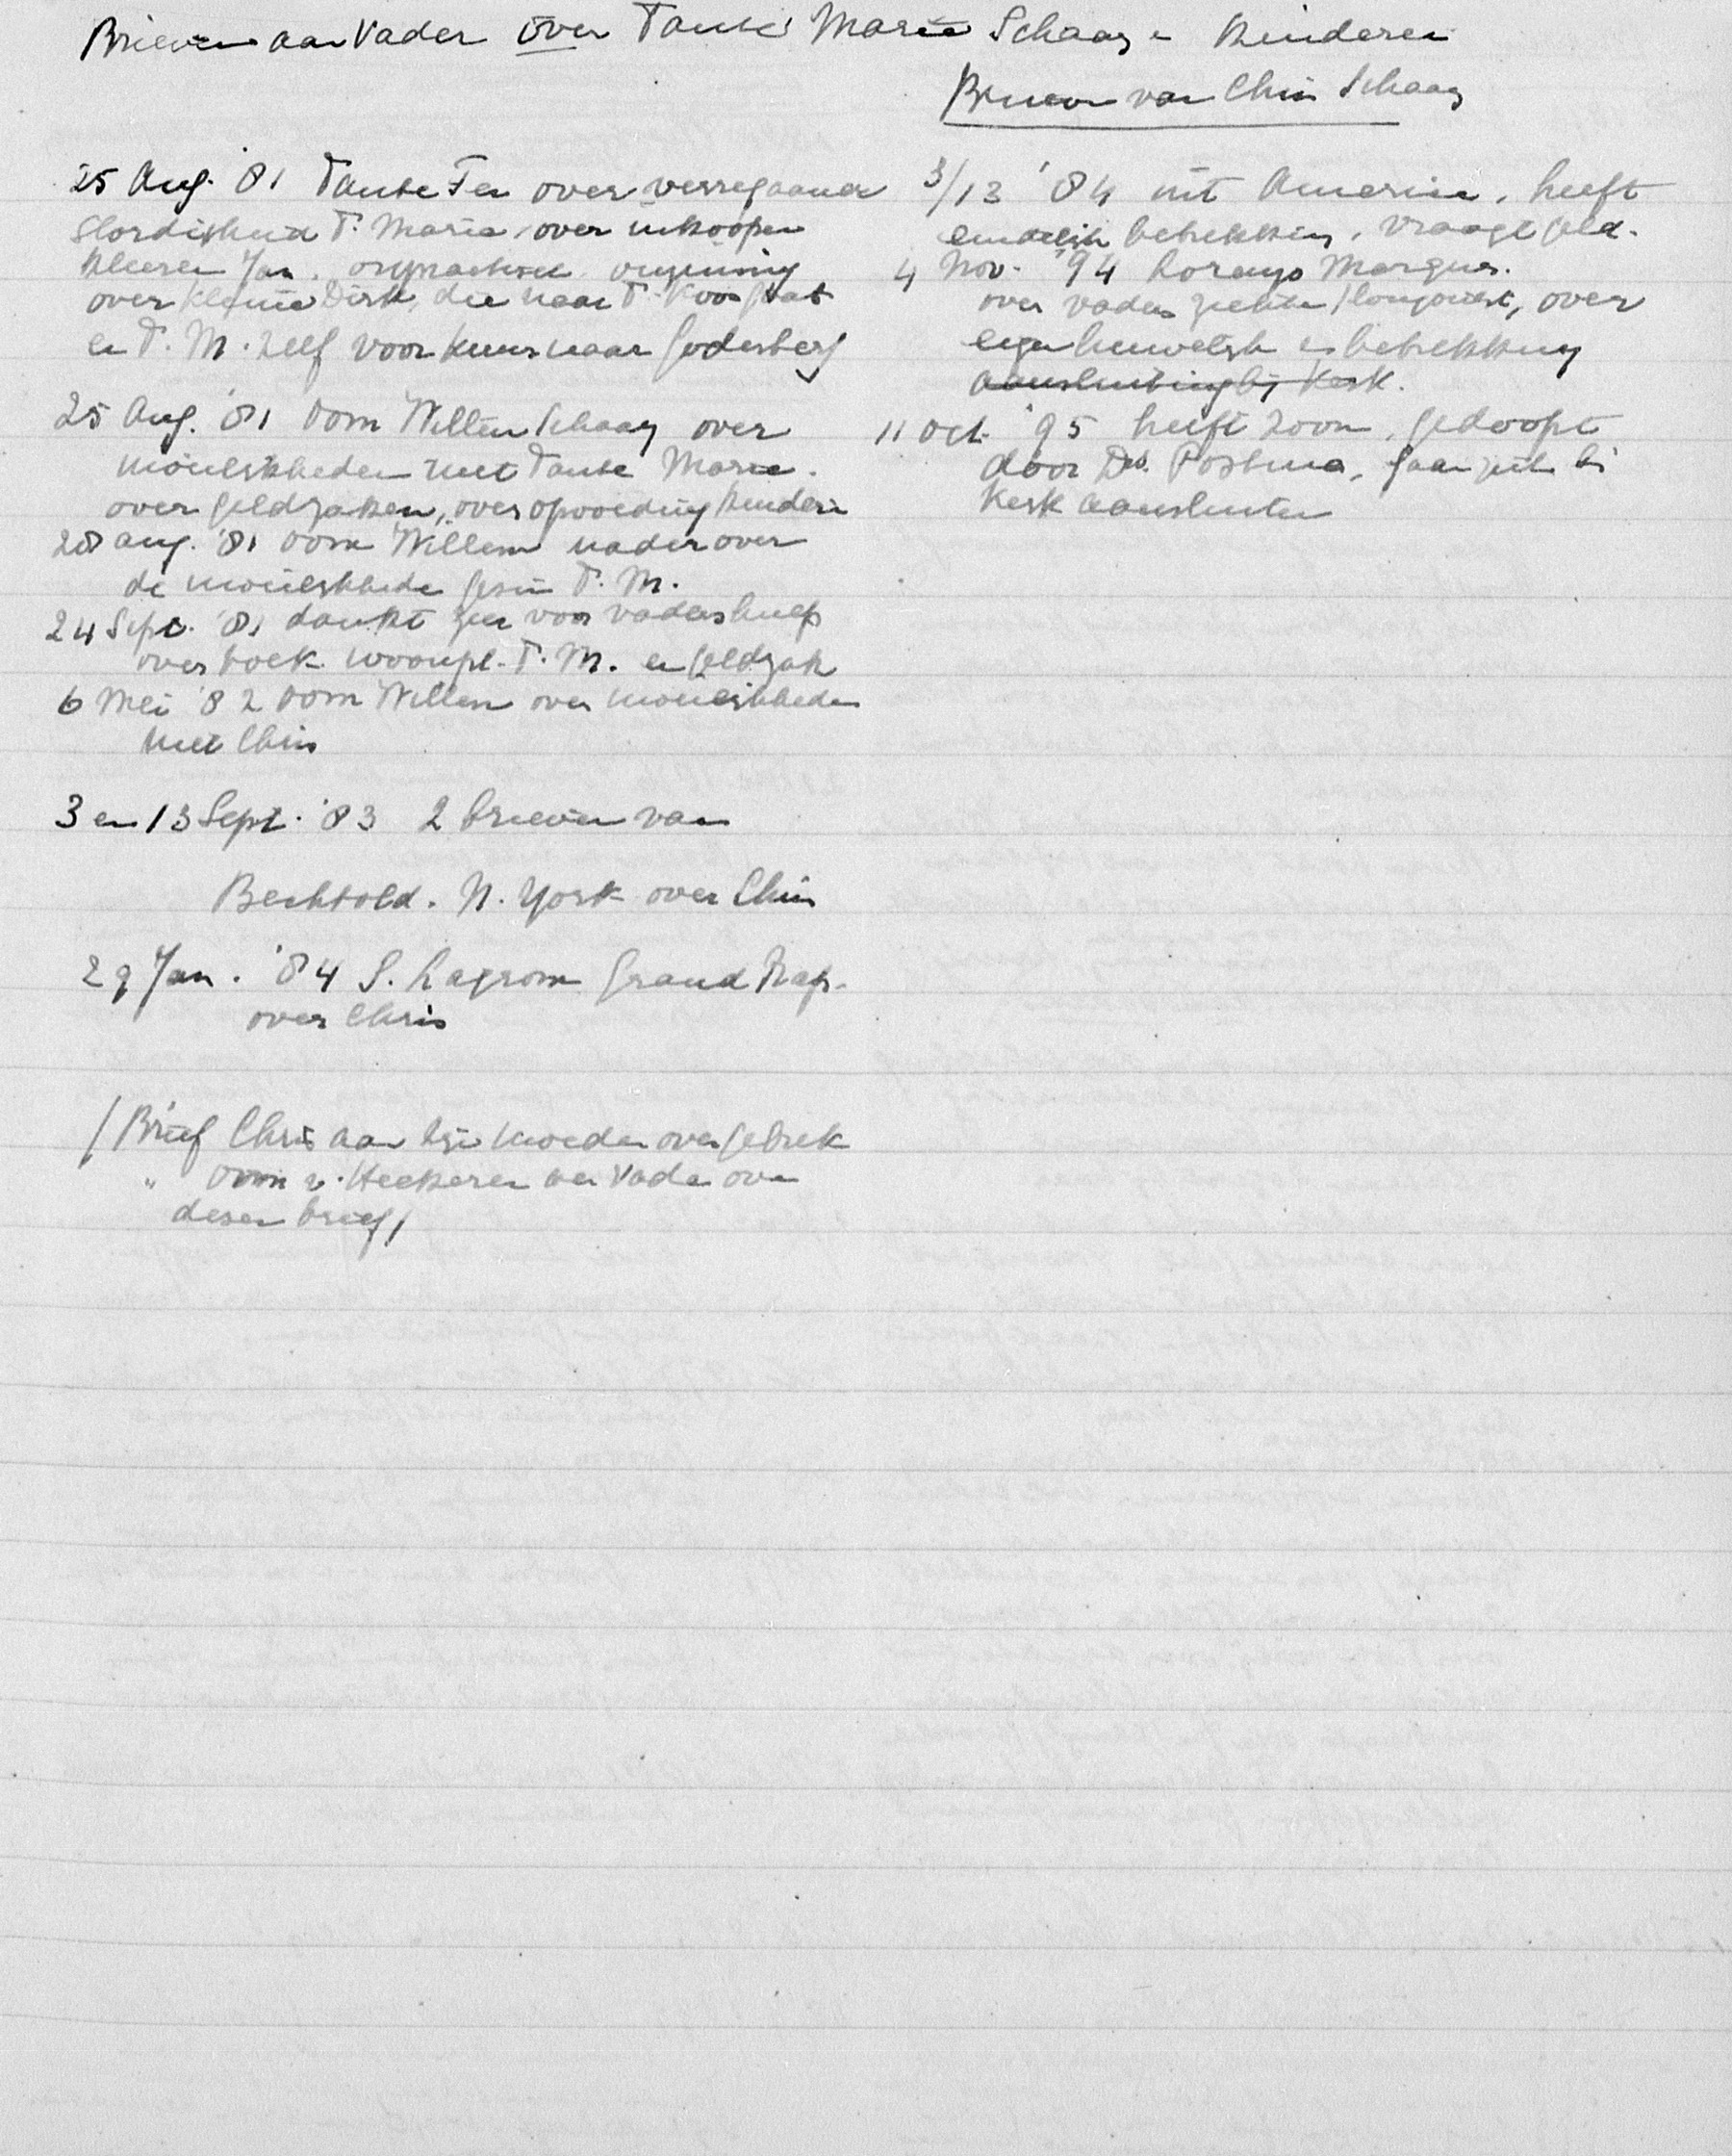 Brieven aan Vader over Tante Marie Schaay - Kinderen
Brieven van Chris Schaay
25 Aug. '81 Tante over verregaande
slordigheid T. Marie, over inkoopen
kleeren Jan.
over kleine Dirk, die naar T. Koos gaat
en T. M. zelf voor kuur naar Godesberg
25 Aug. '81 Oom Willem Schaay over
moeilijkheden met Tante Marie.
over geldzaken, over opvoeding kinderen
28 Aug. '81 Oom Willem nader over
de moeilijkheden gezin T. M.
24 Sept. '81 dankt zeer voor vaders hulp
over woonpl. T. M. en geldzak
6 Mei '82 Oom Willem over moeilijkheden
met Chris
3 en 13 Sept. '83 2 brieven van
Bechtold. N. York over Chris
29 Jan. '84 S. Grand Rap.
over Chris
/ Brief Chris aan zijn moeder over gebrek
" Oom v. Heekeren aan Vader over
dezen brief /
3/13 '84 uit America, heeft
eindelijk betrekking, vraagt geld.
4 Nov. '94 Lorenzo Marques.
over vaders ziekte, over
eigen huwelijk en betrekking
aansluiting bij Kerk.
11 Oct. '95 heeft zoon, gedoopt
door Ds. Postma, gaan zich bij
Kerk aansluiten